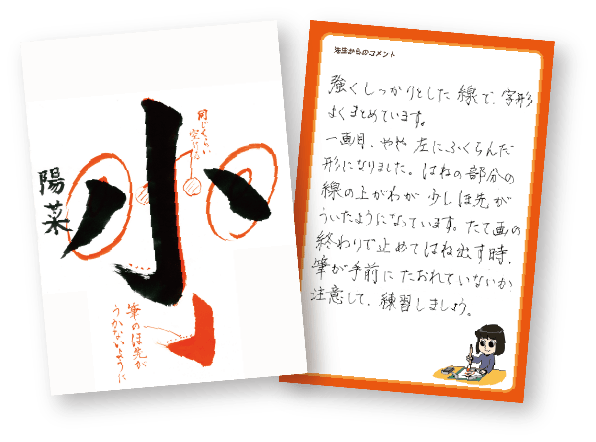 小
陽菜
同じくらい
空ける
筆のほ先が
うかないように
先生からのコメント
強くしっかりとした線で、字形
よくまとめています。
一画目、やや左にふくらんだ
形になりました。はねの部分の
線の上がわが少しほ先が
ういたようになっています。たて画の
終わりで止めてはね出す時、
筆が手前にたおれていないか
注意して、練習しましょう。